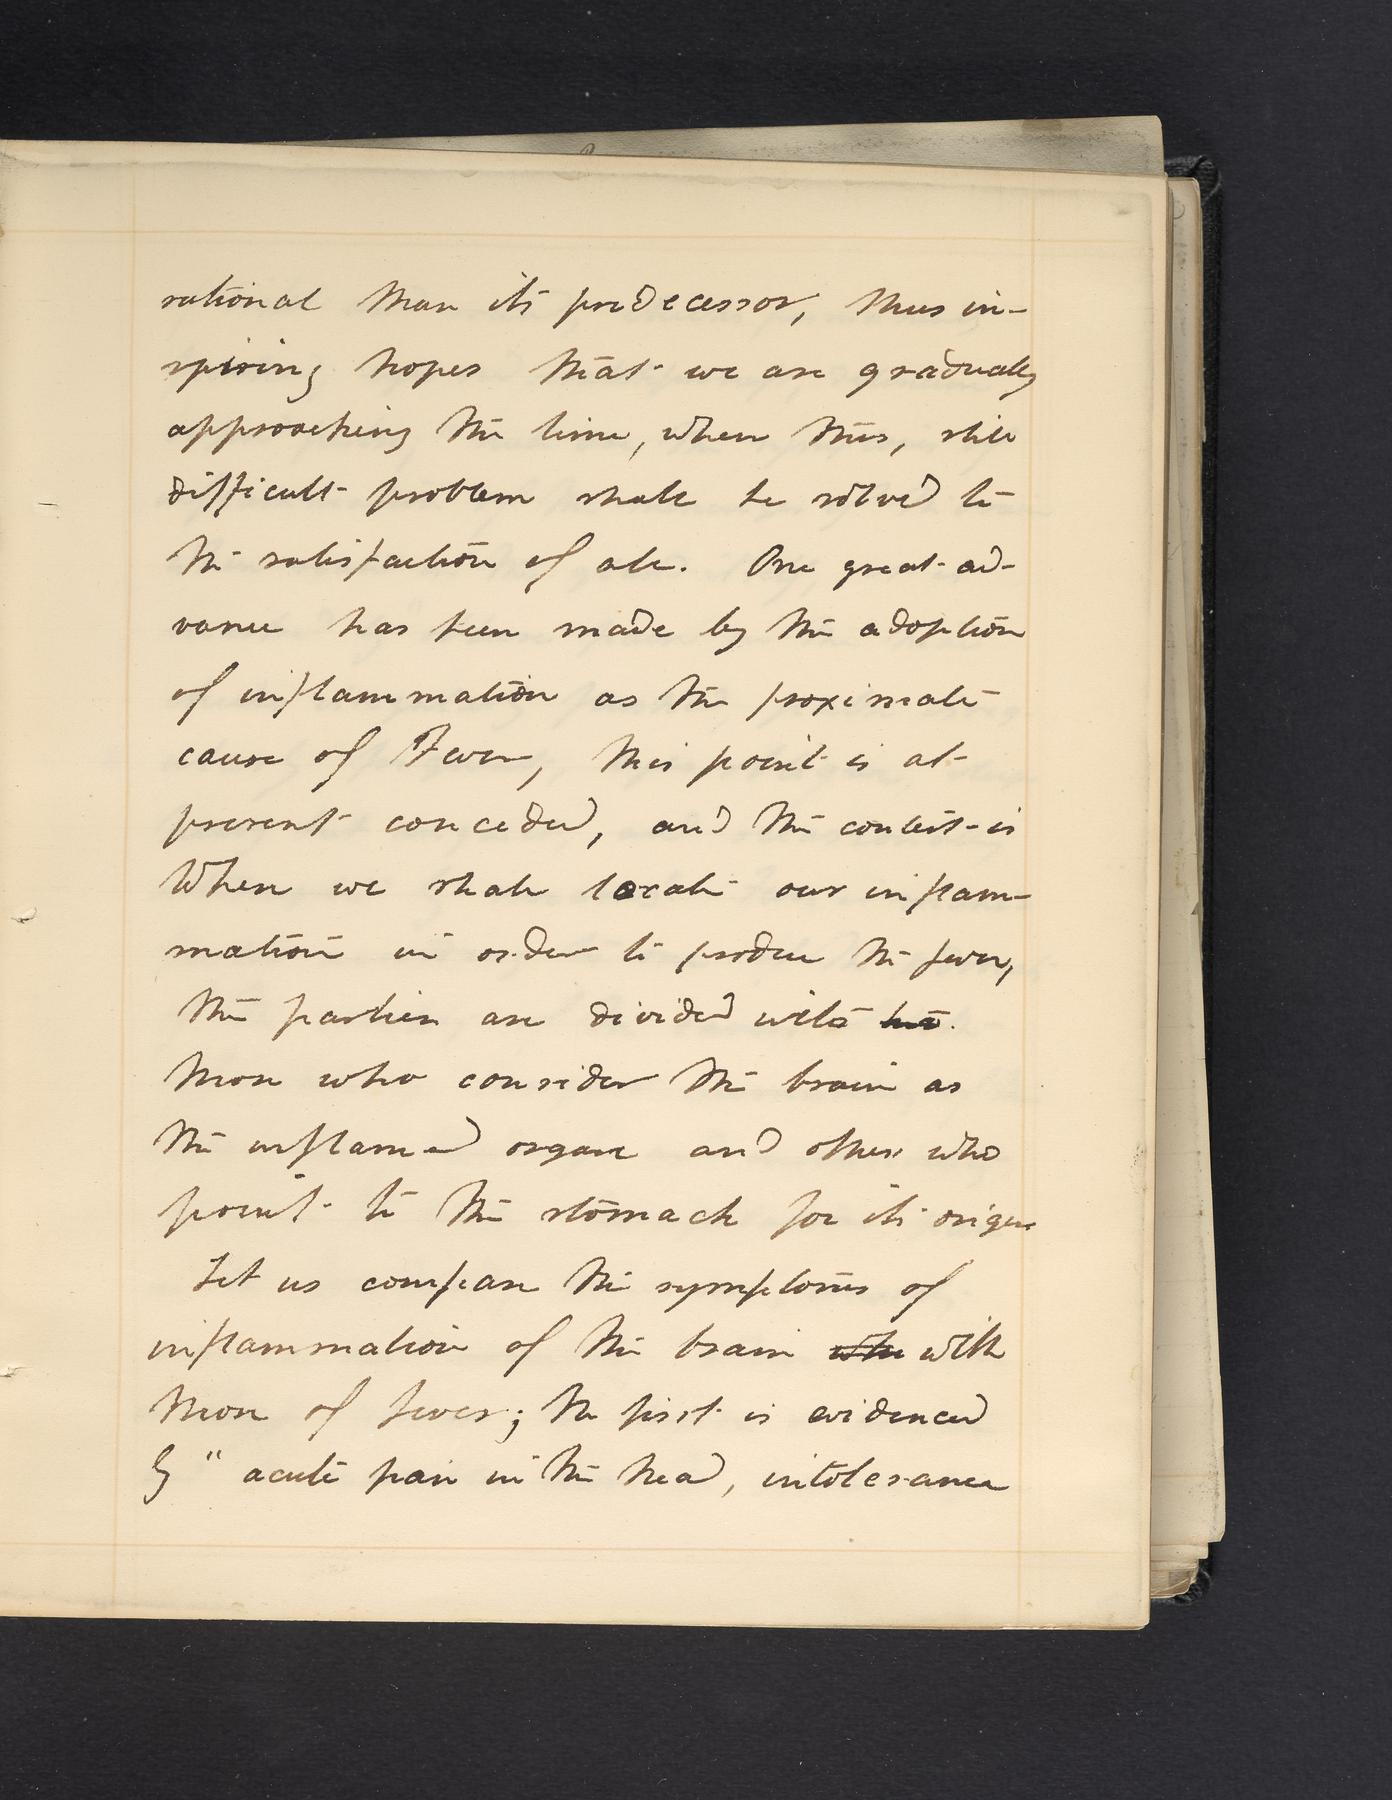 rational than its predecessor, thus in-
spiring hopes that we are gradually
approaching the time, when this, still
difficult problem shall be solved to
the satisfaction of all. One great ad-
vance has been made by the adoption
of inflammation as the proximate
cause of Fever, this point is at
present conceded, and the contest is
When we shall locate our inflam-
mation in order to produce the fever,
the parties are divided into
those who consider the brain as
the inflamed organ and others who
point to the stomach for its origin
Let us compare the symptoms of
inflammation of the brain with
those of fever; the first is evidenced
by "acute pain in the head, intolerance